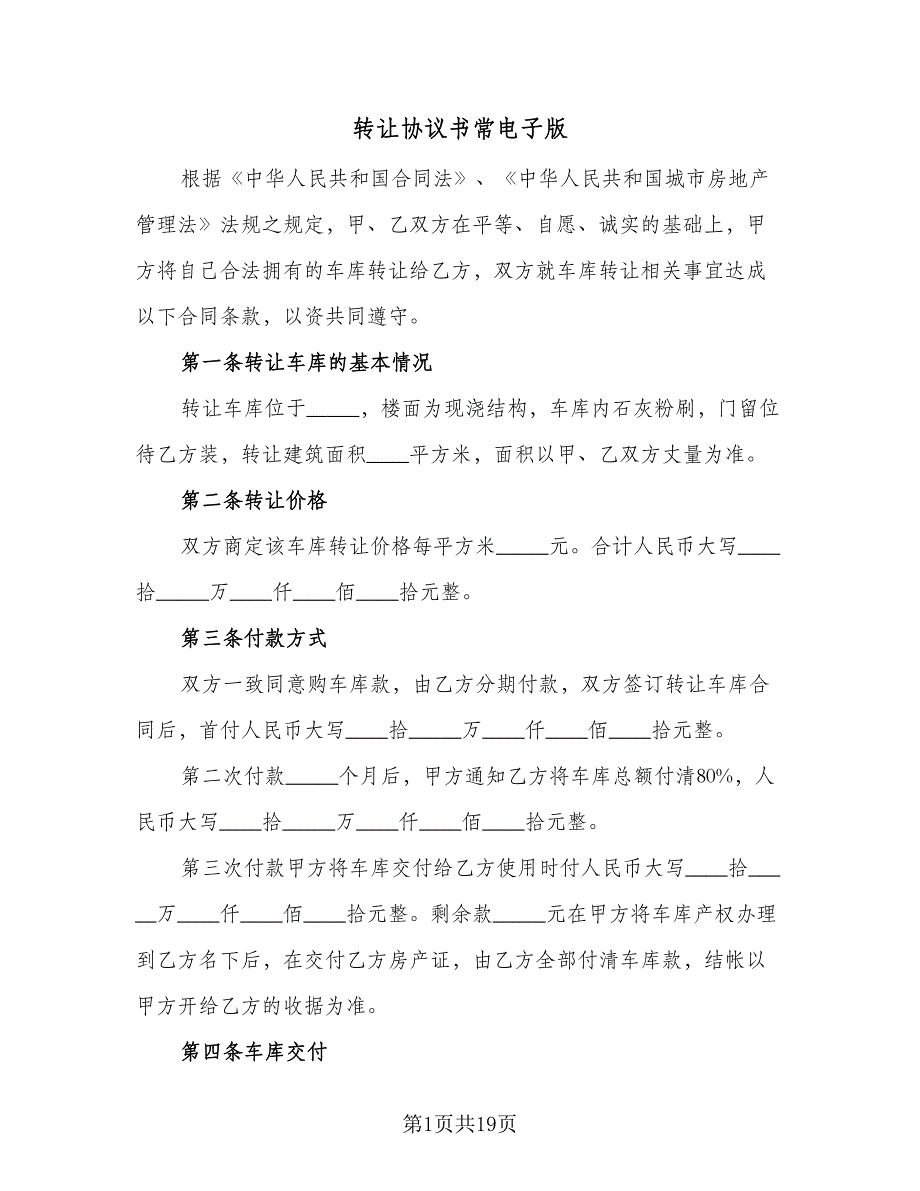 转让协议书常电子版
根据《中华人民共和国合同法》、《中华人民共和国城市房地产
管理法》法规之规定，甲、乙双方在平等、自愿、诚实的基础上，甲
方将自己合法拥有的车库转让给乙方，双方就车库转让相关事宜达成
以下合同条款，以资共同遵守。
第一条转让车库的基本情况
转让车库位于_____，楼面为现浇结构，车库内石灰粉刷，门留位
待乙方装，转让建筑面积____平方米，面积以甲、乙双方丈量为准。
第二条转让价格
双方商定该车库转让价格每平方米_____元。合计人民币大写____
拾_____万____仟____佰____拾元整。
第三条付款方式
双方一致同意购车库款，由乙方分期付款，双方签订转让车库合
同后，首付人民币大写____拾_____万____仟____佰____拾元整。
第二次付款_____个月后，甲方通知乙方将车库总额付清80%，人
民币大写____拾_____万____仟____佰____拾元整。
第三次付款甲方将车库交付给乙方使用时付人民币大写____拾___
__万____仟____佰____拾元整。剩余款_____元在甲方将车库产权办理
到乙方名下后，在交付乙方房产证，由乙方全部付清车库款，结帐以
甲方开给乙方的收据为准。
第四条车库交付
第1页共19页